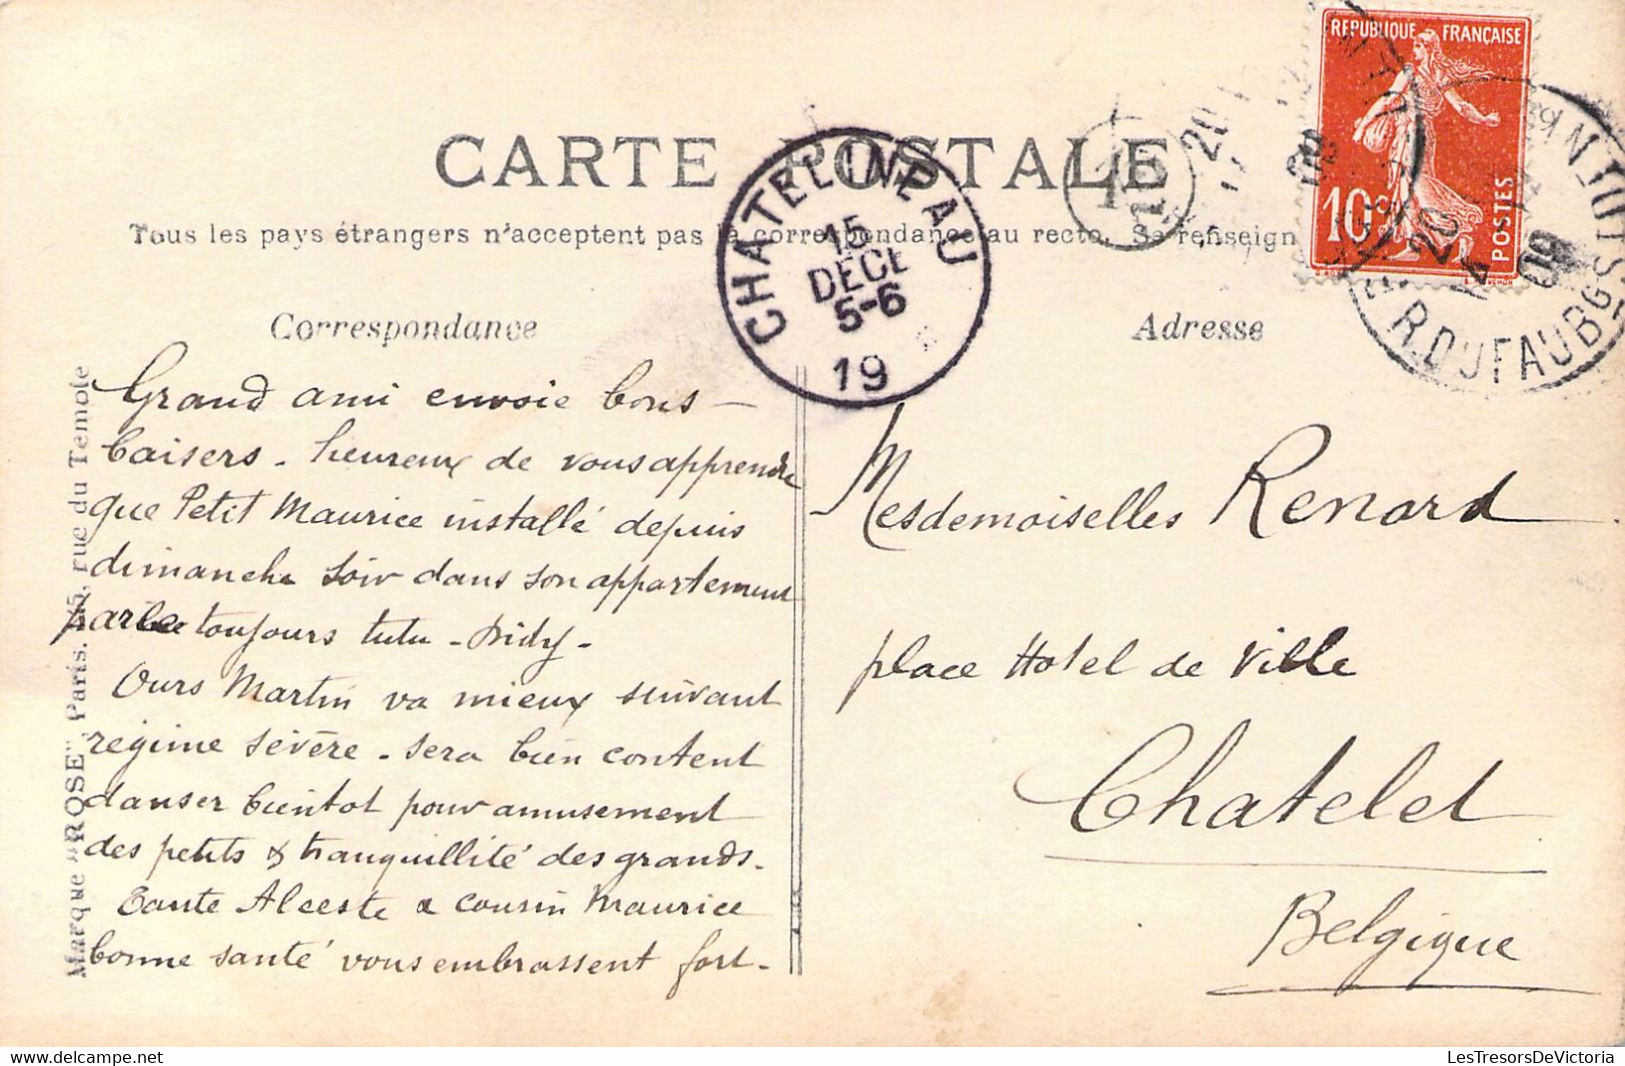 CARTE POSTALE
Tous les pays étrangers n'acceptent pas la correspondance au recto. Se renseign
Correspondance
Adresse
REPUBLIQUE FRANÇAISE
10c
POSTES
CHATELINEAU
15
DECE
5-6
19
R. DU FAUBG ST
20
09
Marque "ROSE", Paris. rue du Temple
Grand ami envoie bons
baisers - heureux de vous apprendre
que Petit Maurice installé depuis
dimanche soir dans son appartement
parle toujours tutu - Didy -
Ours Martin va mieux suivant
régime sévère - sera bien content
danser bientot pour amusement
des petits & tranquillité des grands -
Tante Alceste & cousin Maurice
bonne santé vous embrassent fort -
Mesdemoiselles Renard
place Hotel de Ville
Chatelet
Belgique
LesTresorsDeVictoria
delcampe.net